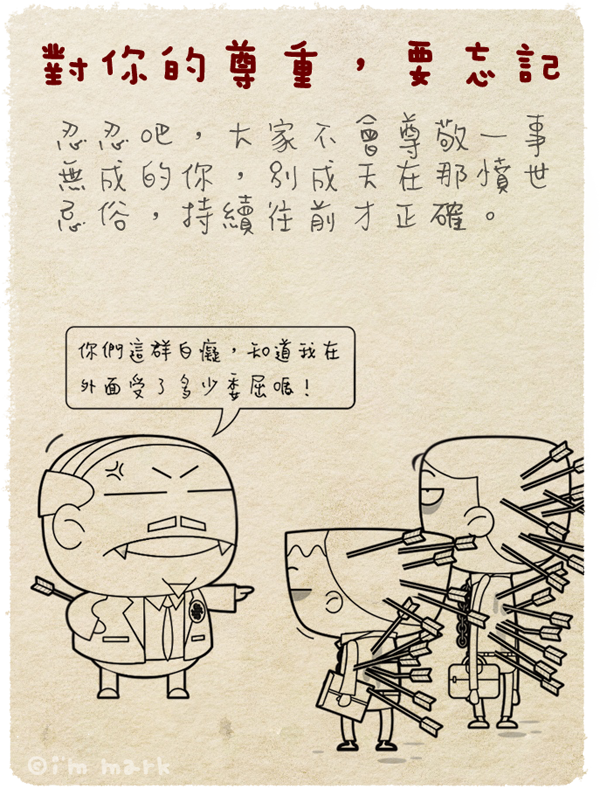 對你的尊重，要忘記
忍忍吧，大家不會尊敬一事
無成的你，別成天在那憤世
忌俗，持續往前才正確。
你們這群白癡，知道我在
外面受了多少委屈嗎！
©i'm mark